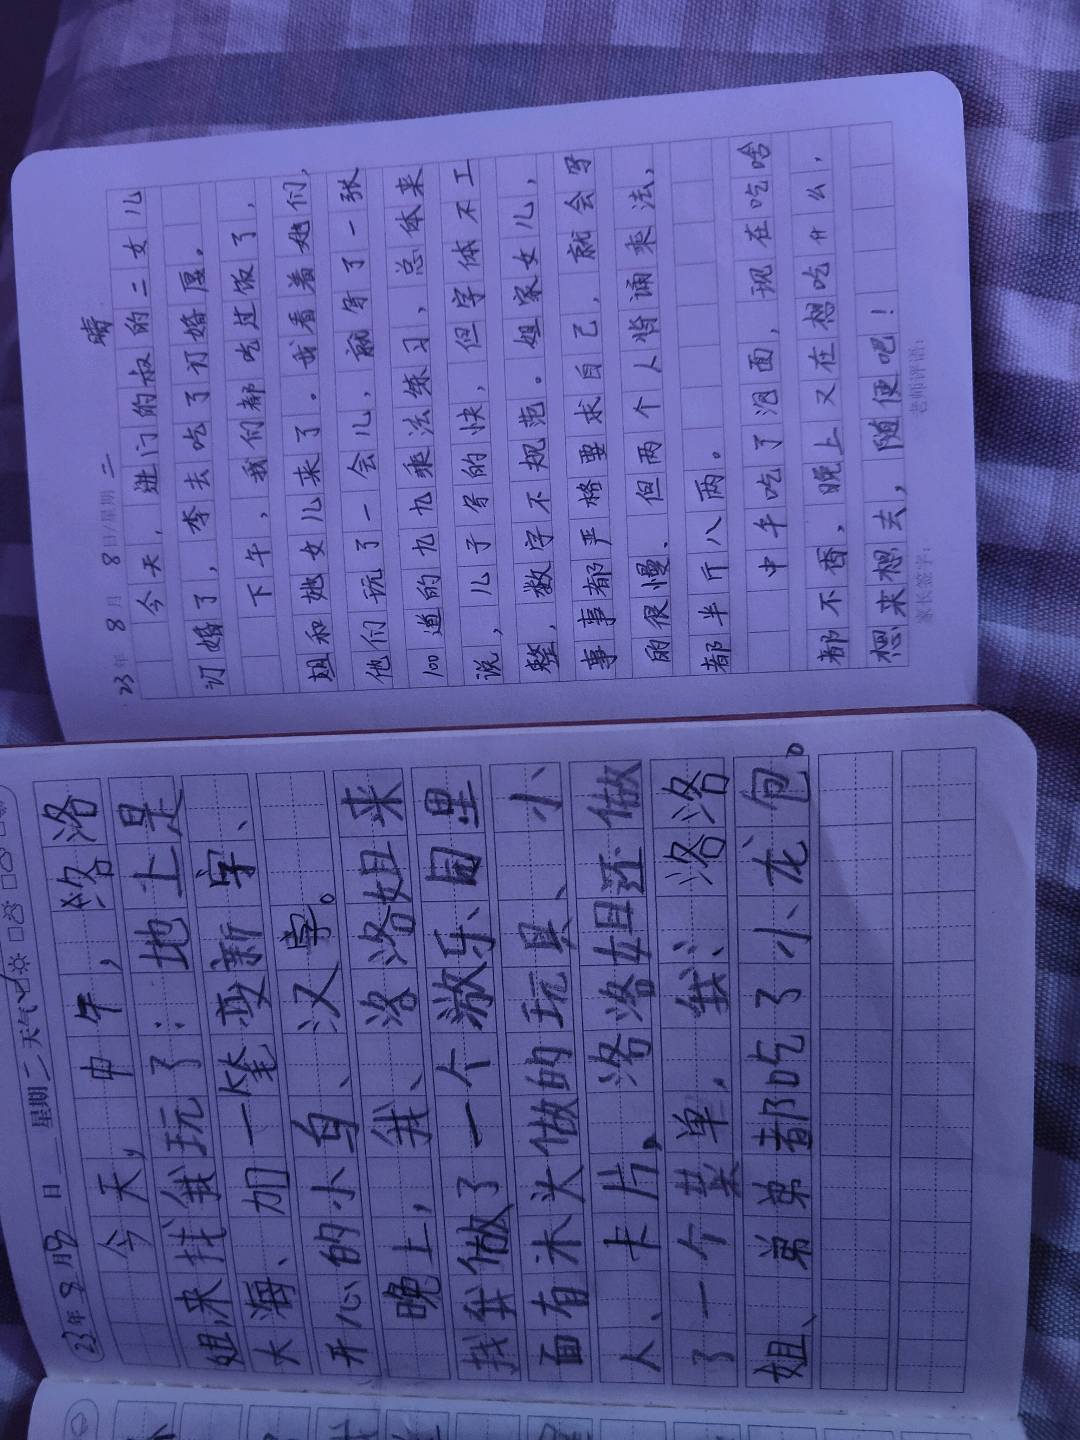 23年8月8日 星期二 天气
今天，中午，洛洛
姐来找我玩了：地上是
大海、加一笔变新字、
开心的小鸟、汉字。
晚上，我、洛洛姐来
找我做了一个游乐园里
面有木头做的玩具、小
人、卡片，洛洛姐还做
了一个菜单，我、洛洛
姐、弟弟都吃了小龙包。
23年8月8日/星期二 晴
今天，进门的叔的二女儿
订婚了，李去吃了订婚席。
下午，我们都吃过饭了，
姐和她女儿来了。我看着她们，
他们玩了一会儿，就写了一张
100道的九九乘法练习，总体来
说，儿子写的快，但字体不工
整，数字不规范。姐家女儿，
事事都严格要求自己，就会写
的很慢、但两个人背诵乘法，
都半斤八两。
中午吃了泡面，现在吃啥
都不香，晚上又在想吃什么，
想来想去，随便吧！
家长签字：
老师评语：